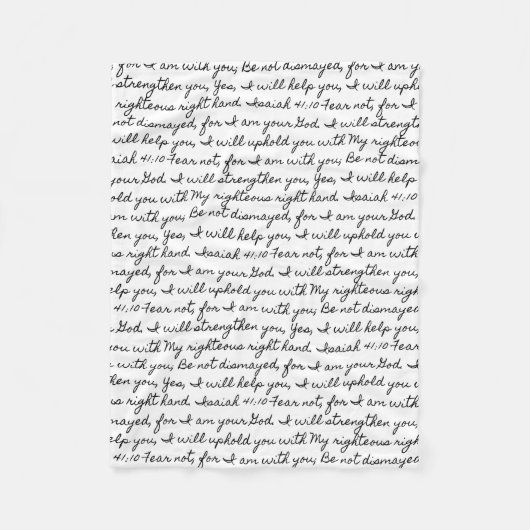 for I am with you; Be not dismayed, for I am y
strengthen you, Yes, I will help you, I will uph
righteous right hand. Isaiah 41:10 Fear not, for I
not dismayed, for I am your God. I will strengt
will help you, I will uphold you with My righteo
aiah 41:10 Fear not, for I am with you; Be not dism
your God. I will strengthen you, Yes, I will help
old you with My righteous right hand. Isaiah 41:10
with you; Be not dismayed, for I am your God.
hen you, Yes, I will help you, I will uphold you
right hand. Isaiah 41:10 Fear not, for I am with
mayed, for I am your God. I will strengthen you,
help you, I will uphold you with My righteous righ
41:10 Fear not, for I am with you; Be not dismayed
God. I will strengthen you, Yes, I will help you,
ou with My righteous right hand. Isaiah 41:10 Fear
with you; Be not dismayed, for I am your God. I
then you, Yes, I will help you, I will uphold you
right hand. Isaiah 41:10 Fear not, for I am with
mayed, for I am your God. I will strengthen you,
elp you, I will uphold you with My righteous righ
41:10 Fear not, for I am with you; Be not dismayed